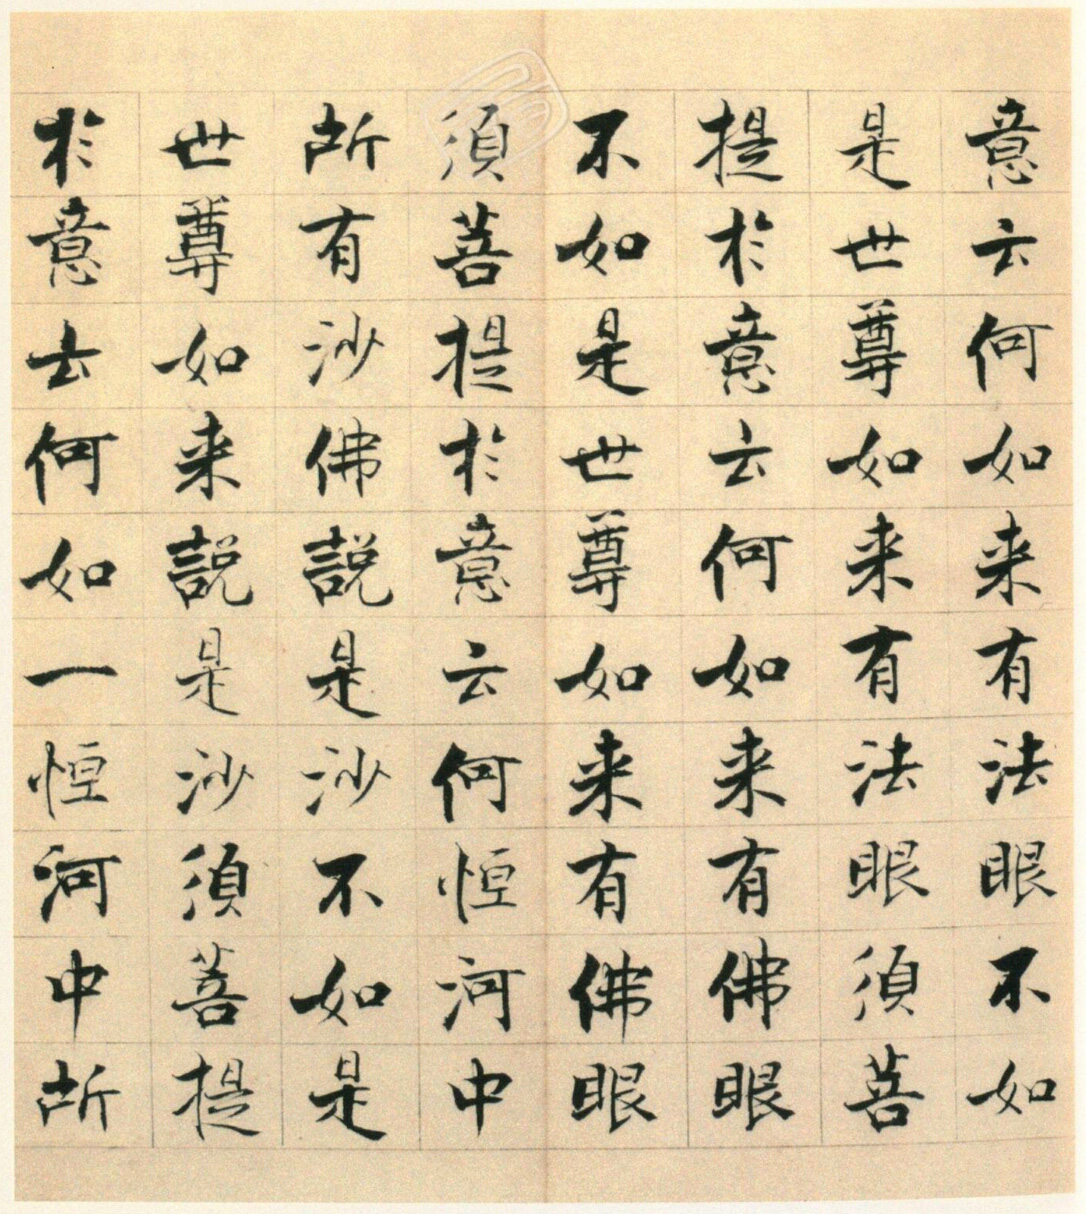 意云何如来有法眼不如
是世尊如来有法眼須菩
提於意云何如来有佛眼
不如是世尊如来有佛眼
須菩提於意云何恒河中
所有沙佛說是沙不如是
世尊如来說是沙須菩提
於意云何如一恒河中所